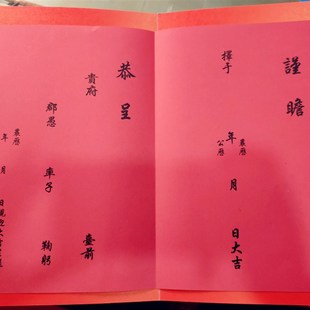 謹瞻
擇于
農曆
年 月 日大吉
公曆
恭呈
貴府 臺前
愚 率子 鞠躬
農曆
年 月 日